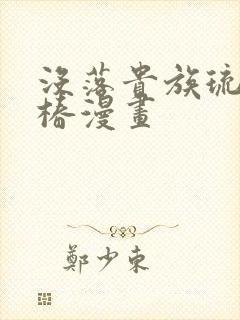 没落貴族琉
椿漫畫
鄭少東